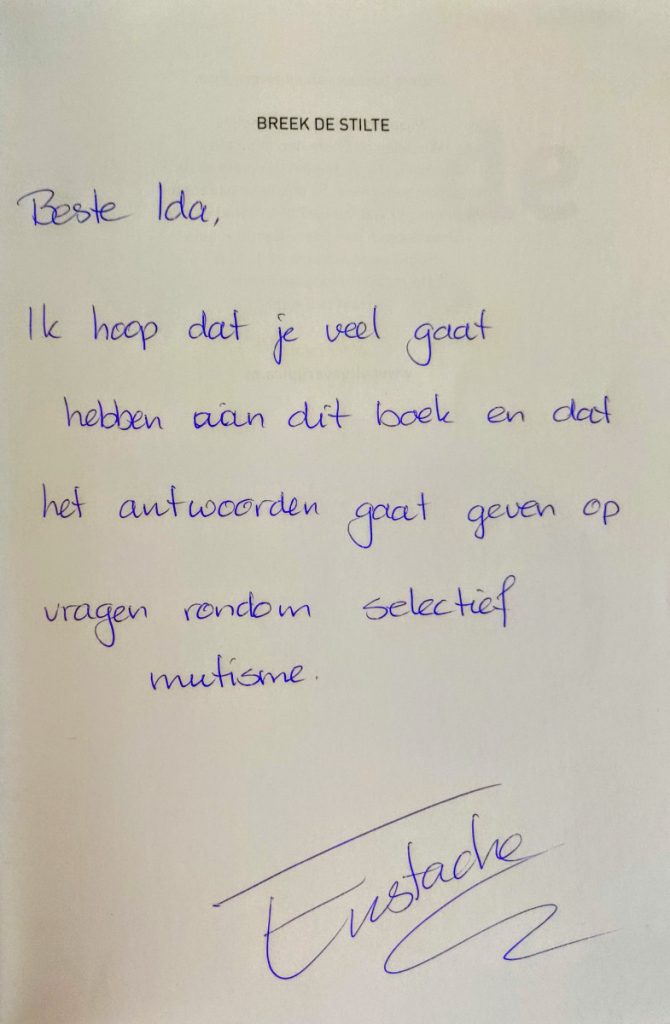 BREEK DE STILTE
Beste Ida,
Ik hoop dat je veel gaat
hebben aan dit boek en dat
het antwoorden gaat geven op
vragen rondom selectief
mutisme.
Eustache